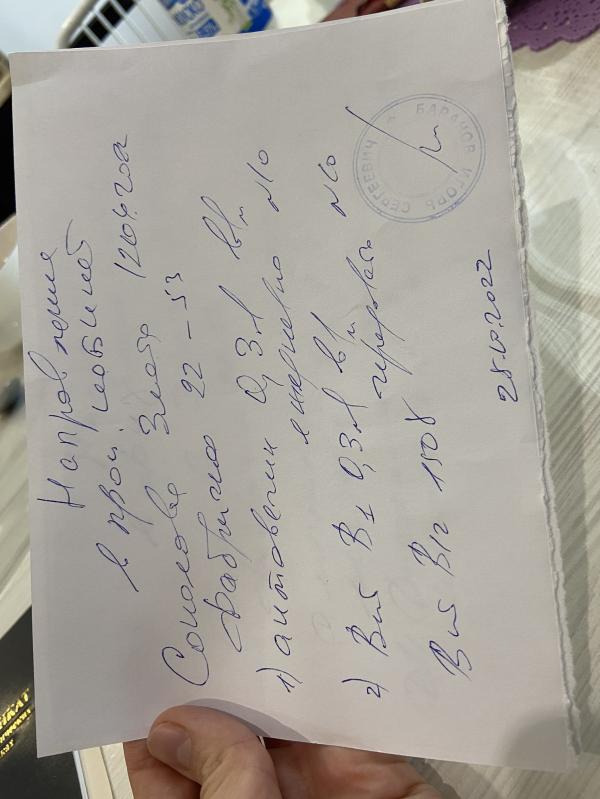 Направление
в проц. кабинет
Соколова Злата 12.04.20а
Фабрично 22 – 53
1) актовегин 0,3 мл в/м
ежедневно N10
2) Вит В1 0,3 мл в/м
чередовать N10
Вит В12 150 γ
28.10.2022
БАРАНОВ ИГОРЬ СЕРГЕЕВИЧ